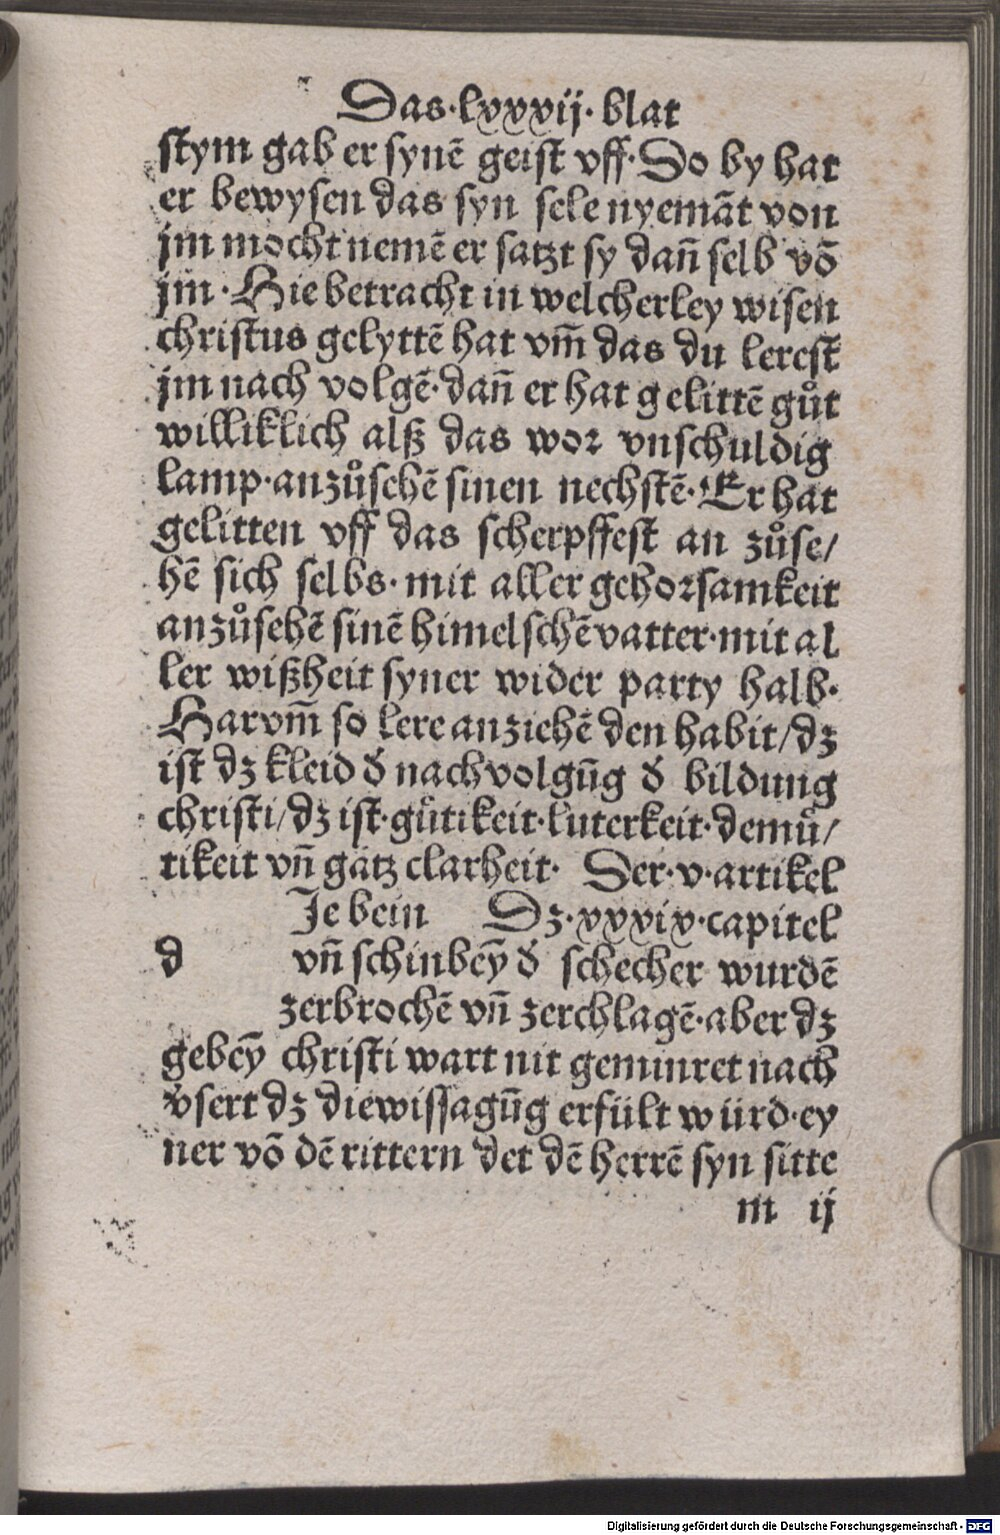 Das·lxxxij·blat
stym gab er synē geist vff·So by hat
er bewysen das syn sele nyemāt von
jm mocht nemē er satzt sy dañ selb vō
jm·Hie betracht in welcherley wisen
christus gelyttē hat vm̄ das du lerest
jm nach volgē·dañ er hat gelittē gůt
williklich alß das wor vnschuldig
lamp·anzůsehē sinen nechstē·Er hat
gelitten vff das scherpffest an zůse/
hē sich selbs·mit aller gehorsamkeit
anzůsehē sinē himelschē vatter·mit al
ler wißheit syner wider party halb·
Harvm̄ so lere anziehē den habit/dz
ist dz kleid d̕ nachvolgūg d̕ bildung
christi/dz ist·gůtikeit·luterkeit·demů/
tikeit vñ gātz clarheit· Der·v·artikel
Je bein Dz·xxxix·capitel
d vñ schinbēy d̕ schecher wurdē
zerbrochē vñ zerchlagē·aber dz
gebēy christi wart nit geminret nach
v̕sert dz die wissagūg erfült würd·ey
ner vō dē rittern det dē herrē syn sitte
m ij
Digitalisierung gefördert durch die Deutsche Forschungsgemeinschaft - DFG